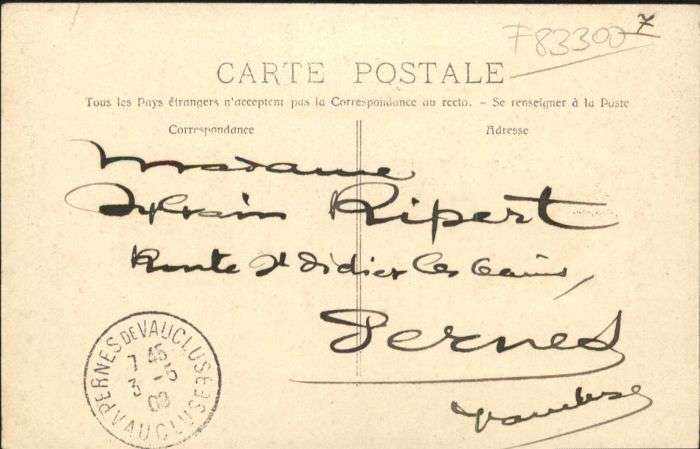 F83300
7
CARTE POSTALE
Tous les Pays étrangers n'acceptent pas la Correspondance au recto. - Se renseigner à la Poste
Correspondance
Adresse
Madame
Sylvain Ripert
Route St Didier les bains,
Pernes
Vaucluse
PERNES DE VAUCLUSE
7 45
3 - 5
08
VAUCLUSE